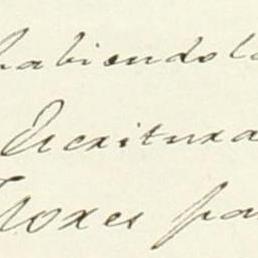 habiendola
Escritura
Flores pa